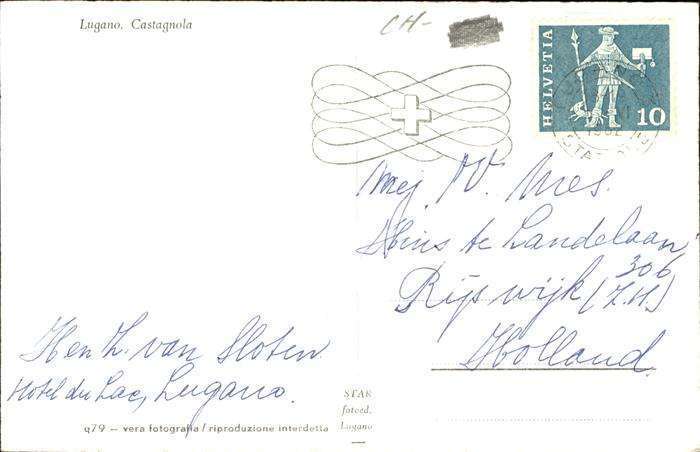 Lugano. Castagnola
CH-
HELVETIA
10
Mej. W. Mes.
Huis te Landelaan
306
Rijswijk (Z.H.)
Holland.
H en L. van Sloten
Hotel du Lac, Lugano.
STAR
fotoed.
Lugano
q79 – vera fotografia / riproduzione interdetta